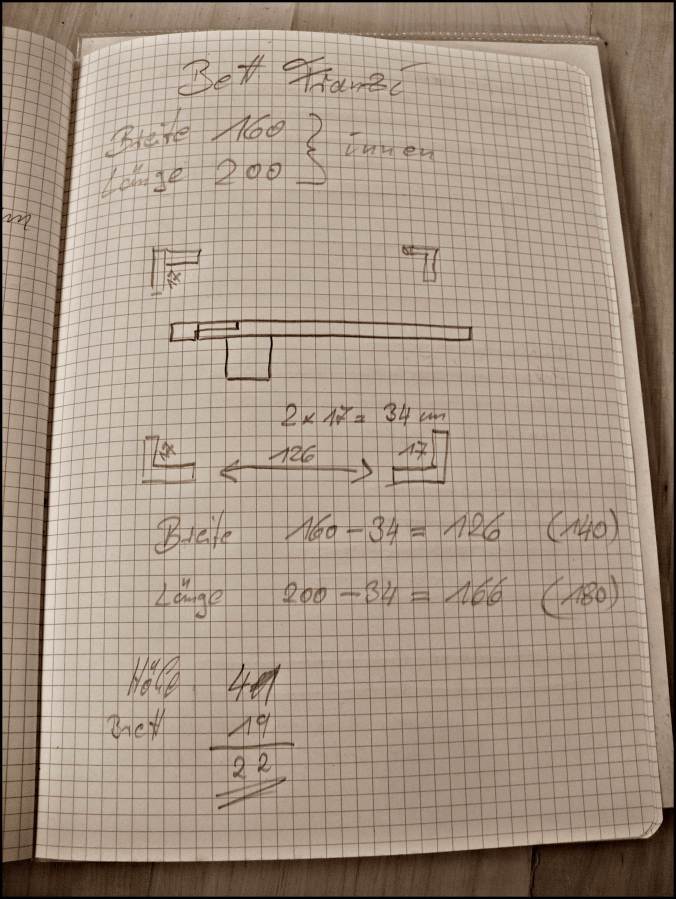 Bett Franzi
Breite 160
Länge 200
innen
17
2 x 17 = 34 cm
17
126
17
Breite 160 - 34 = 126 (140)
Länge 200 - 34 = 166 (180)
Höhe
Brett 19
22